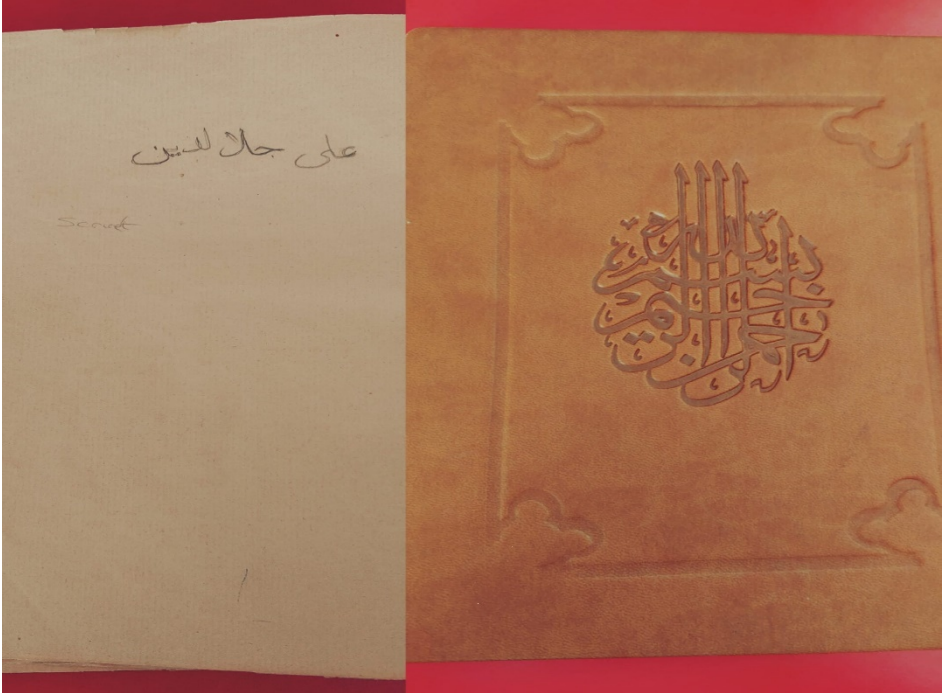 على جلا لدين
Script
بسم الله الرحمن الرحيم